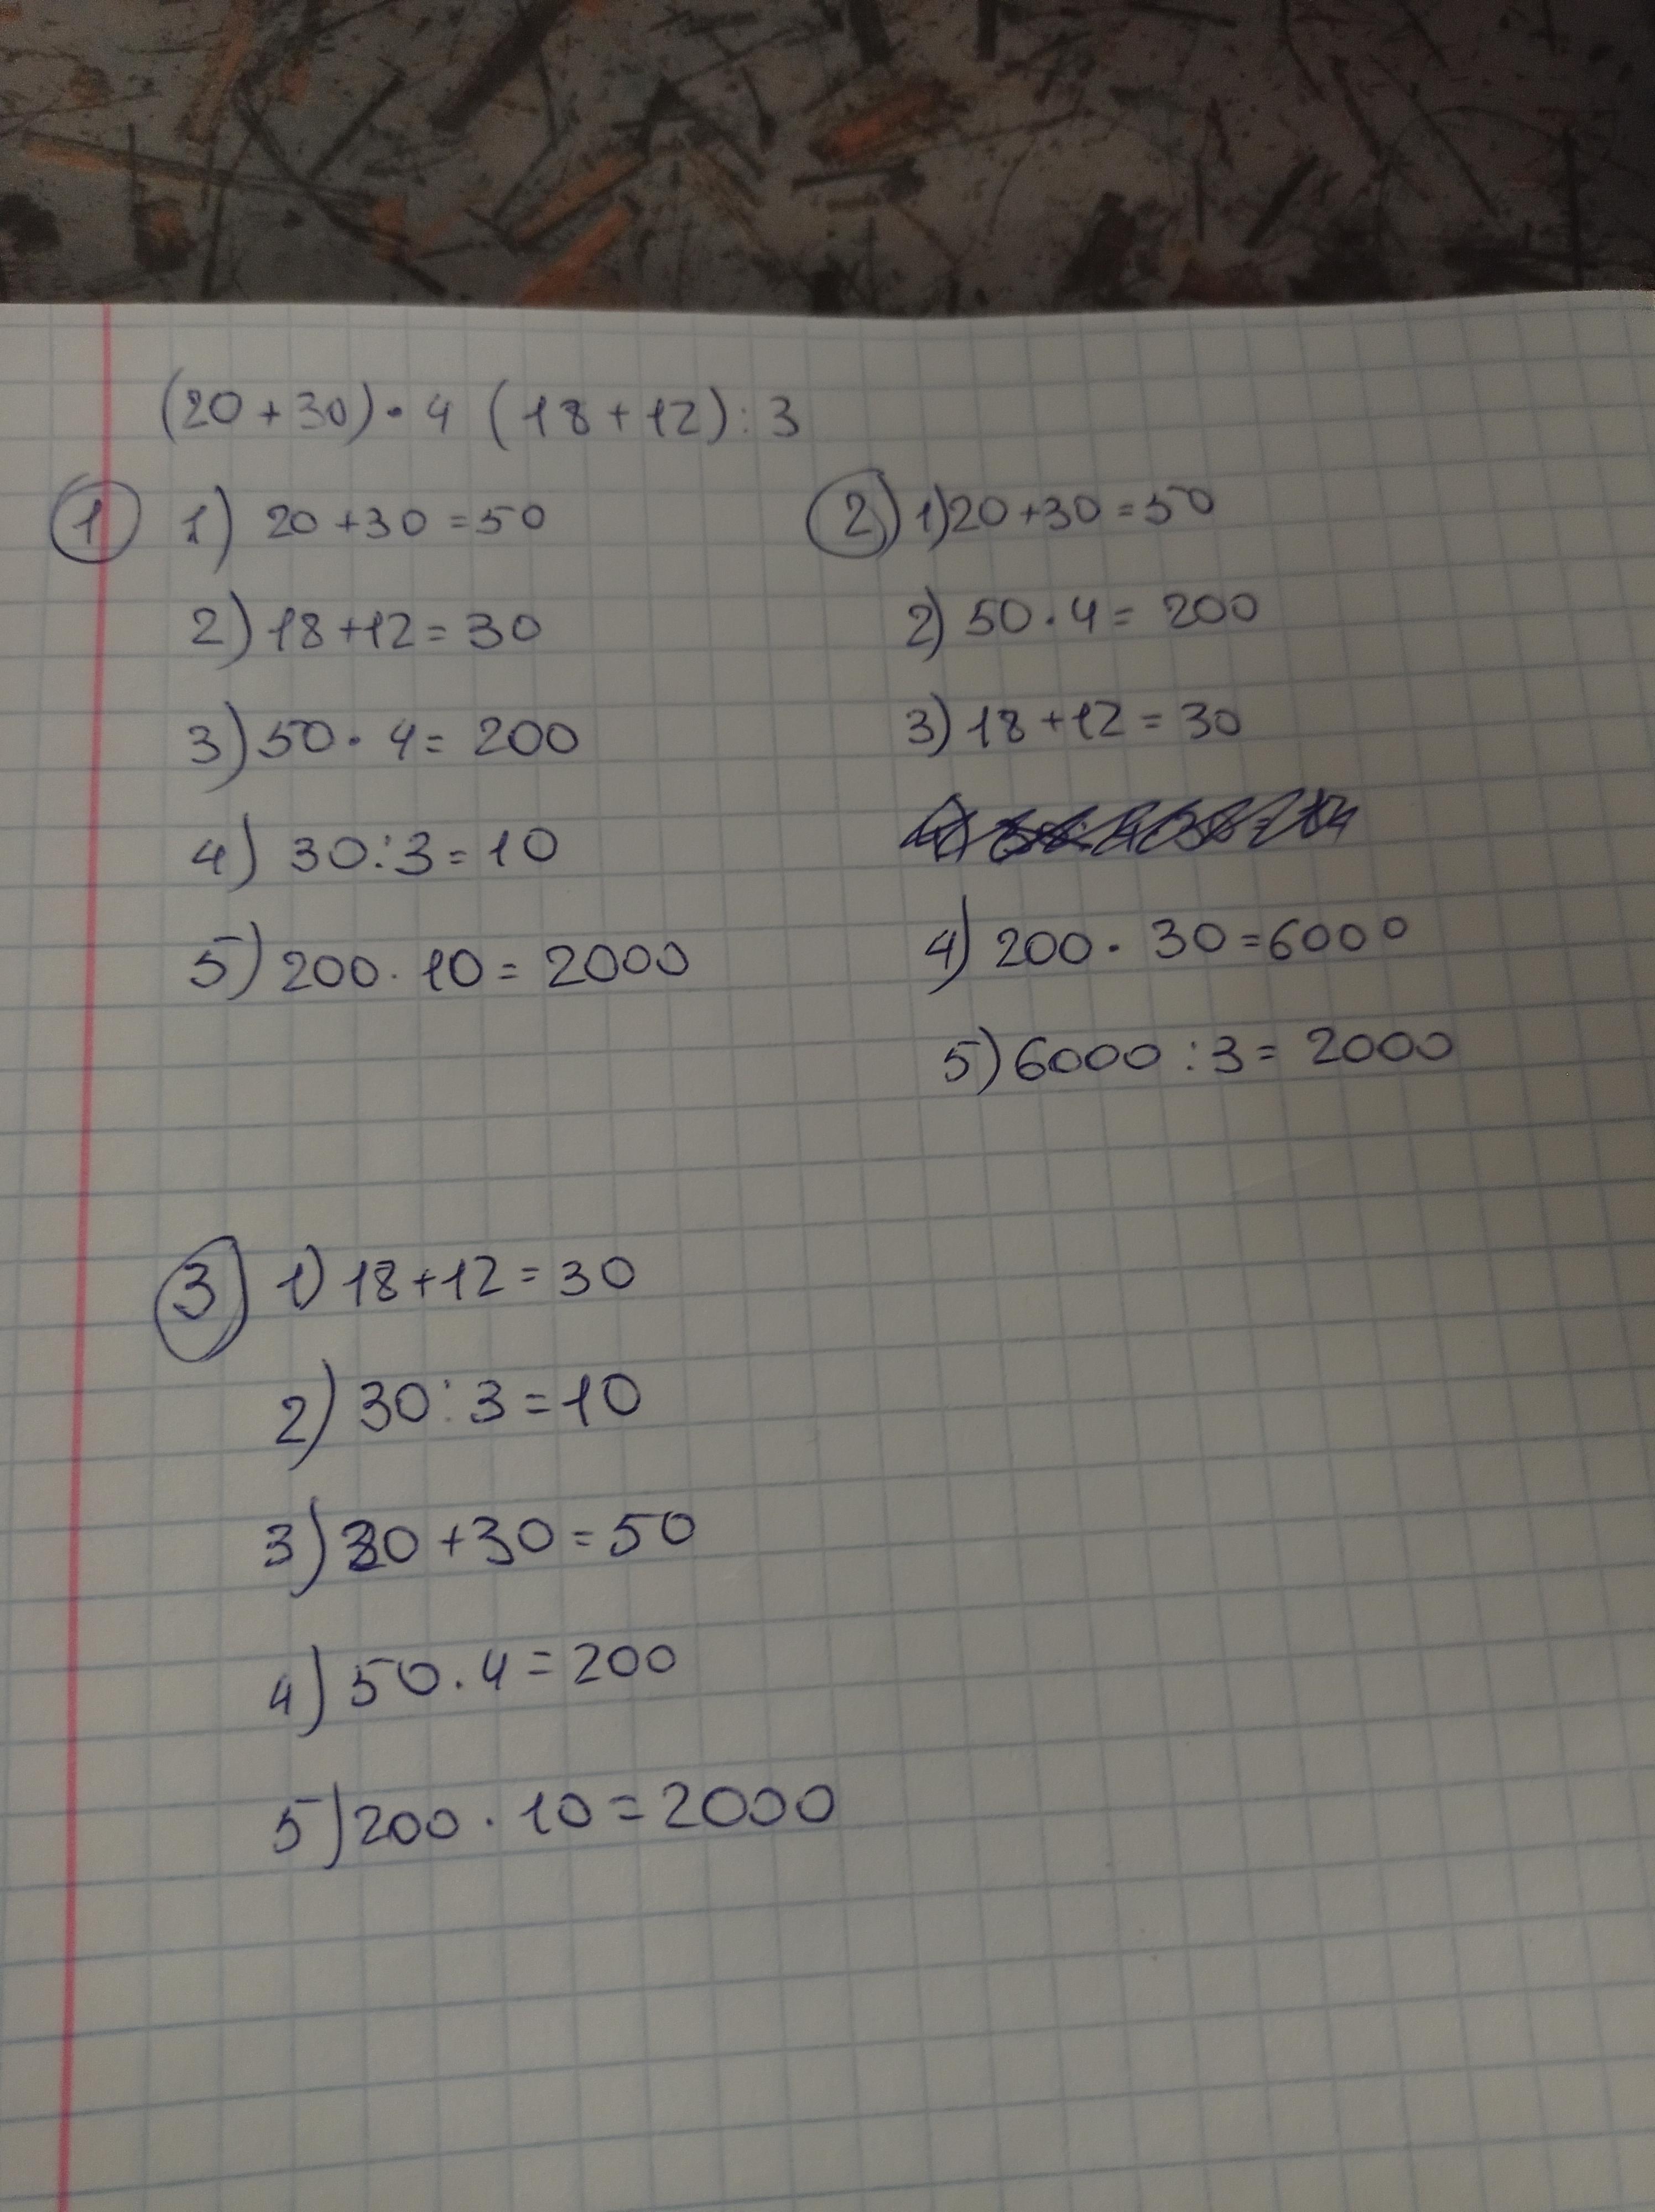 (20+30)·4 (18+12):3
1 1) 20+30=50
2) 18+12=30
3) 50·4=200
4) 30:3=10
5) 200·10=2000
2 1) 20+30=50
2) 50·4=200
3) 18+12=30
4) 200·30=6000
5) 6000:3=2000
3 1) 18+12=30
2) 30:3=10
3) 20+30=50
4) 50·4=200
5) 200·10=2000